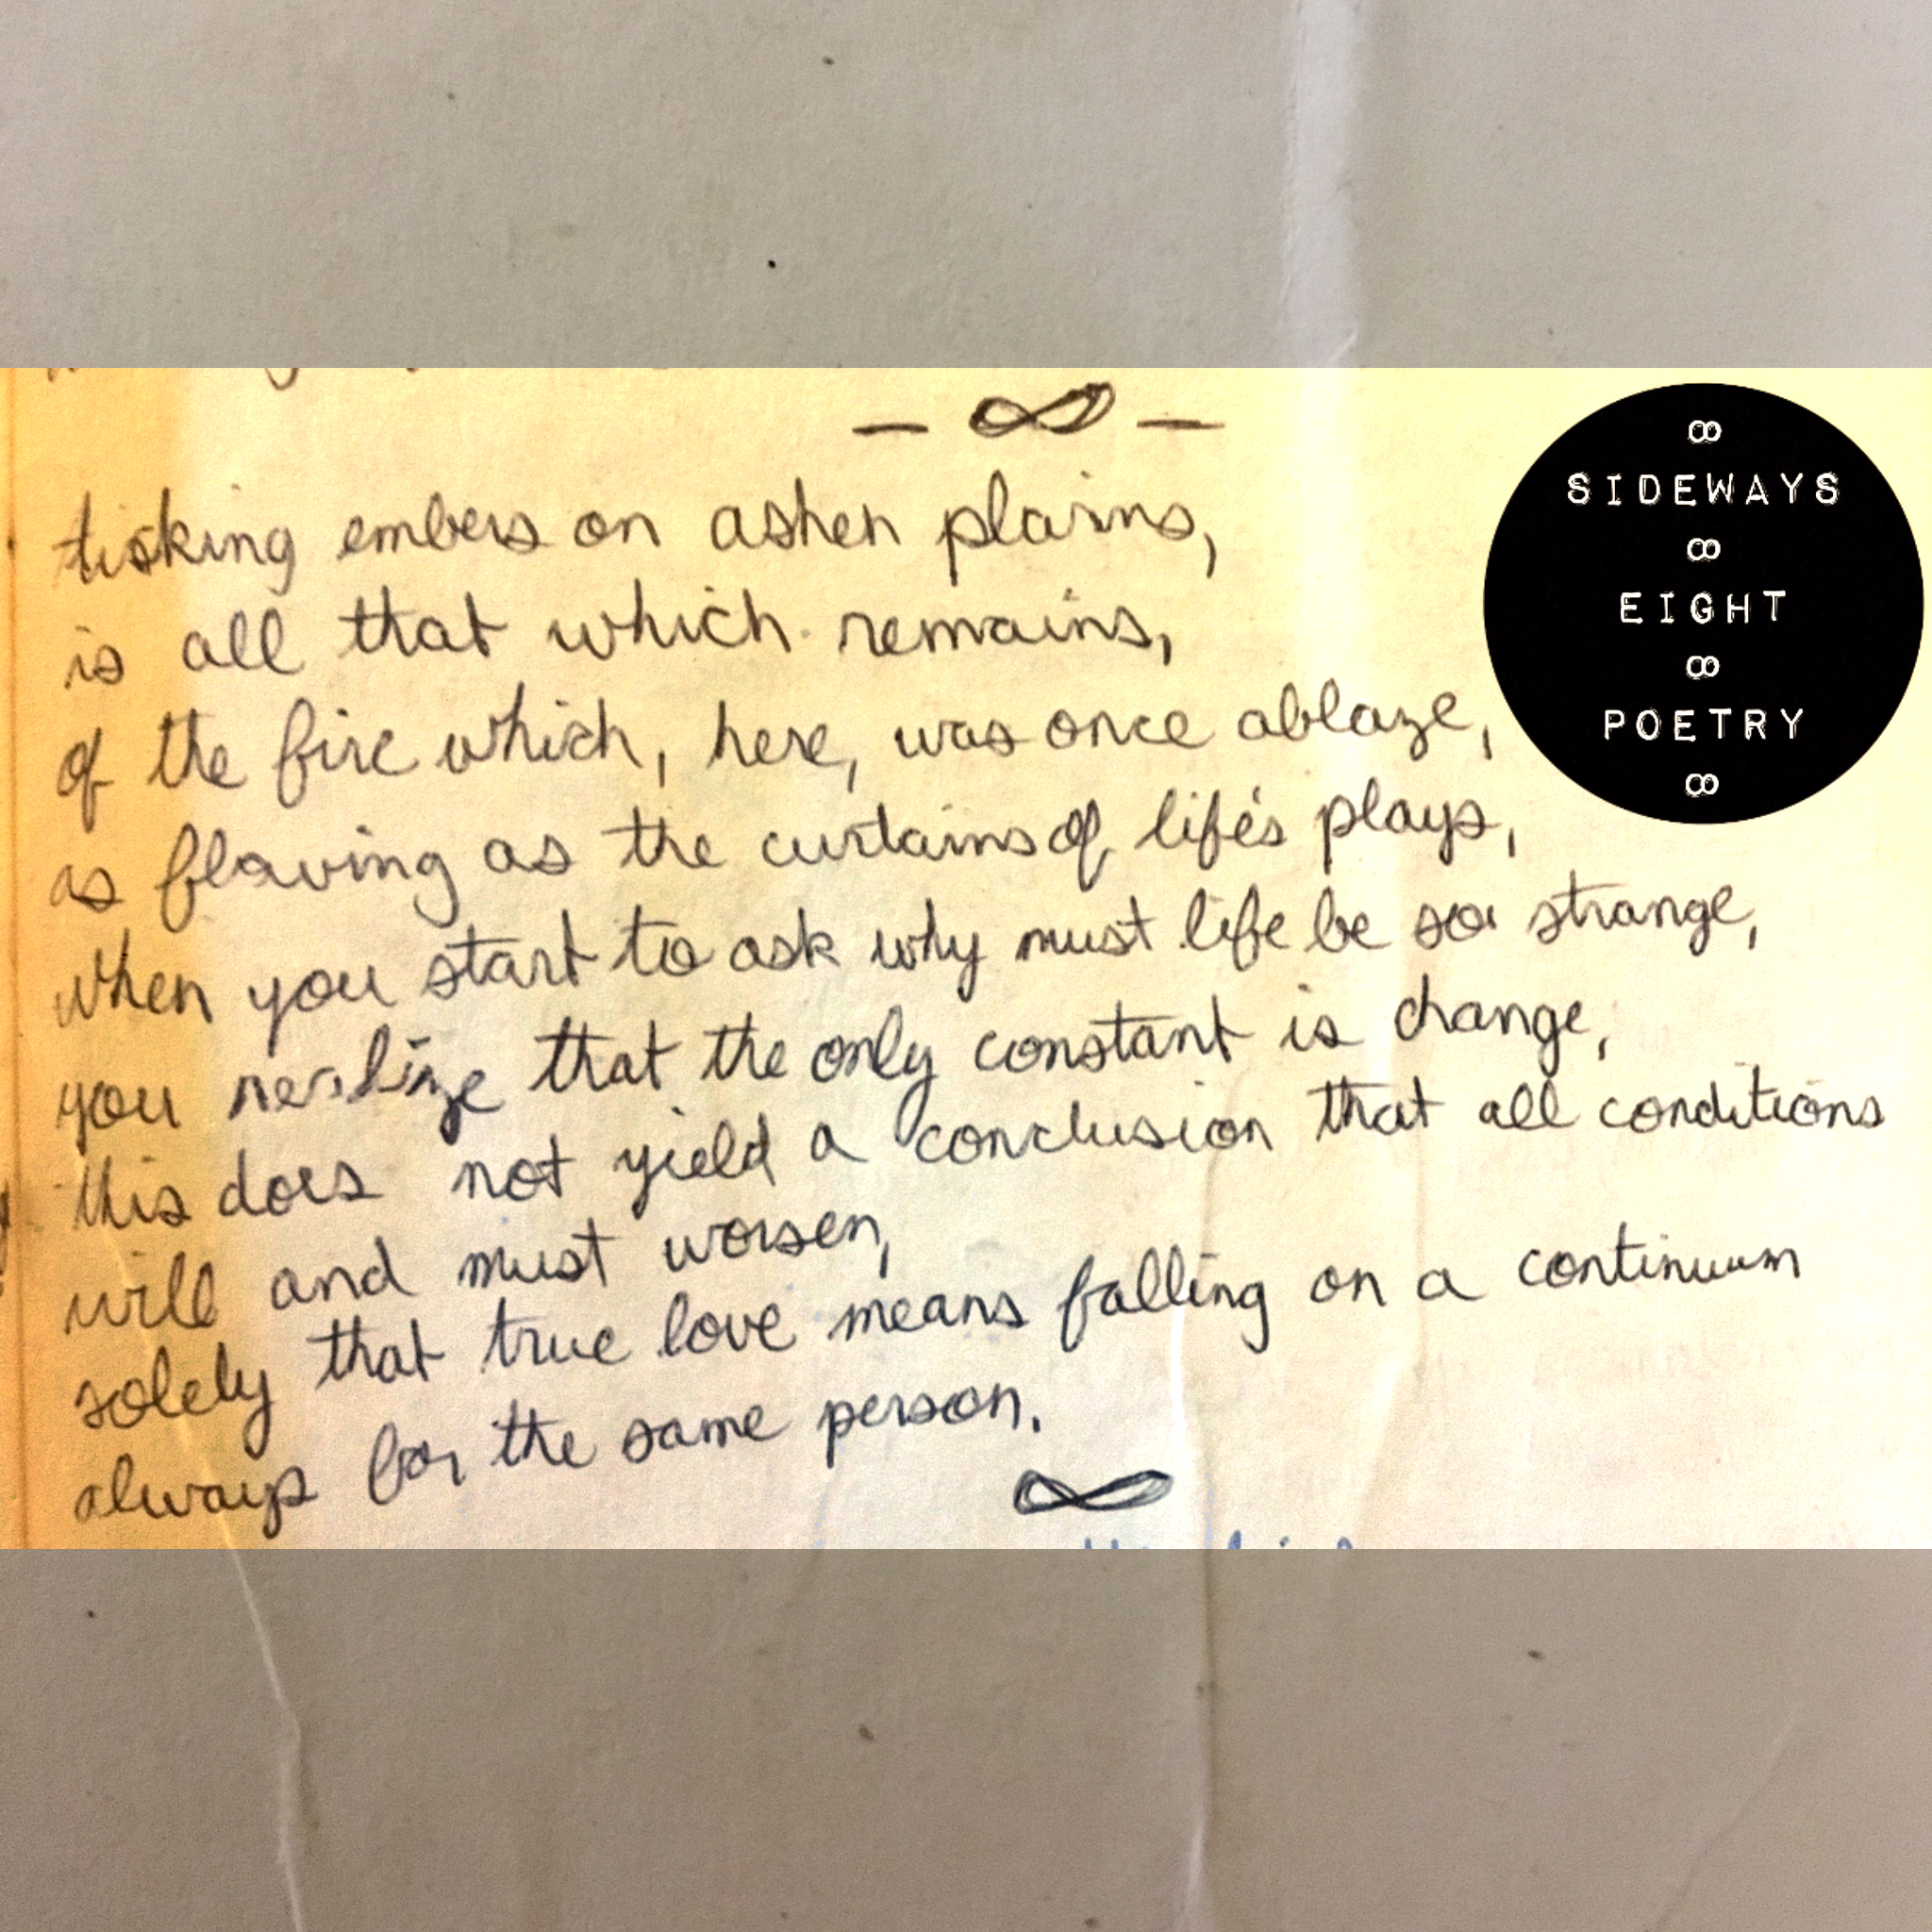 — ∞ —
tisking embers on ashen plains,
is all that which remains,
of the fire which, here, was once ablaze,
as flaving as the curtains of life's plays,
when you start to ask why must life be so strange,
you realize that the only constant is change,
this does not yield a conclusion that all conditions
will and must worsen,
solely that true love means falling on a continuum
always for the same person.
∞
∞
SIDEWAYS
∞
EIGHT
∞
POETRY
∞